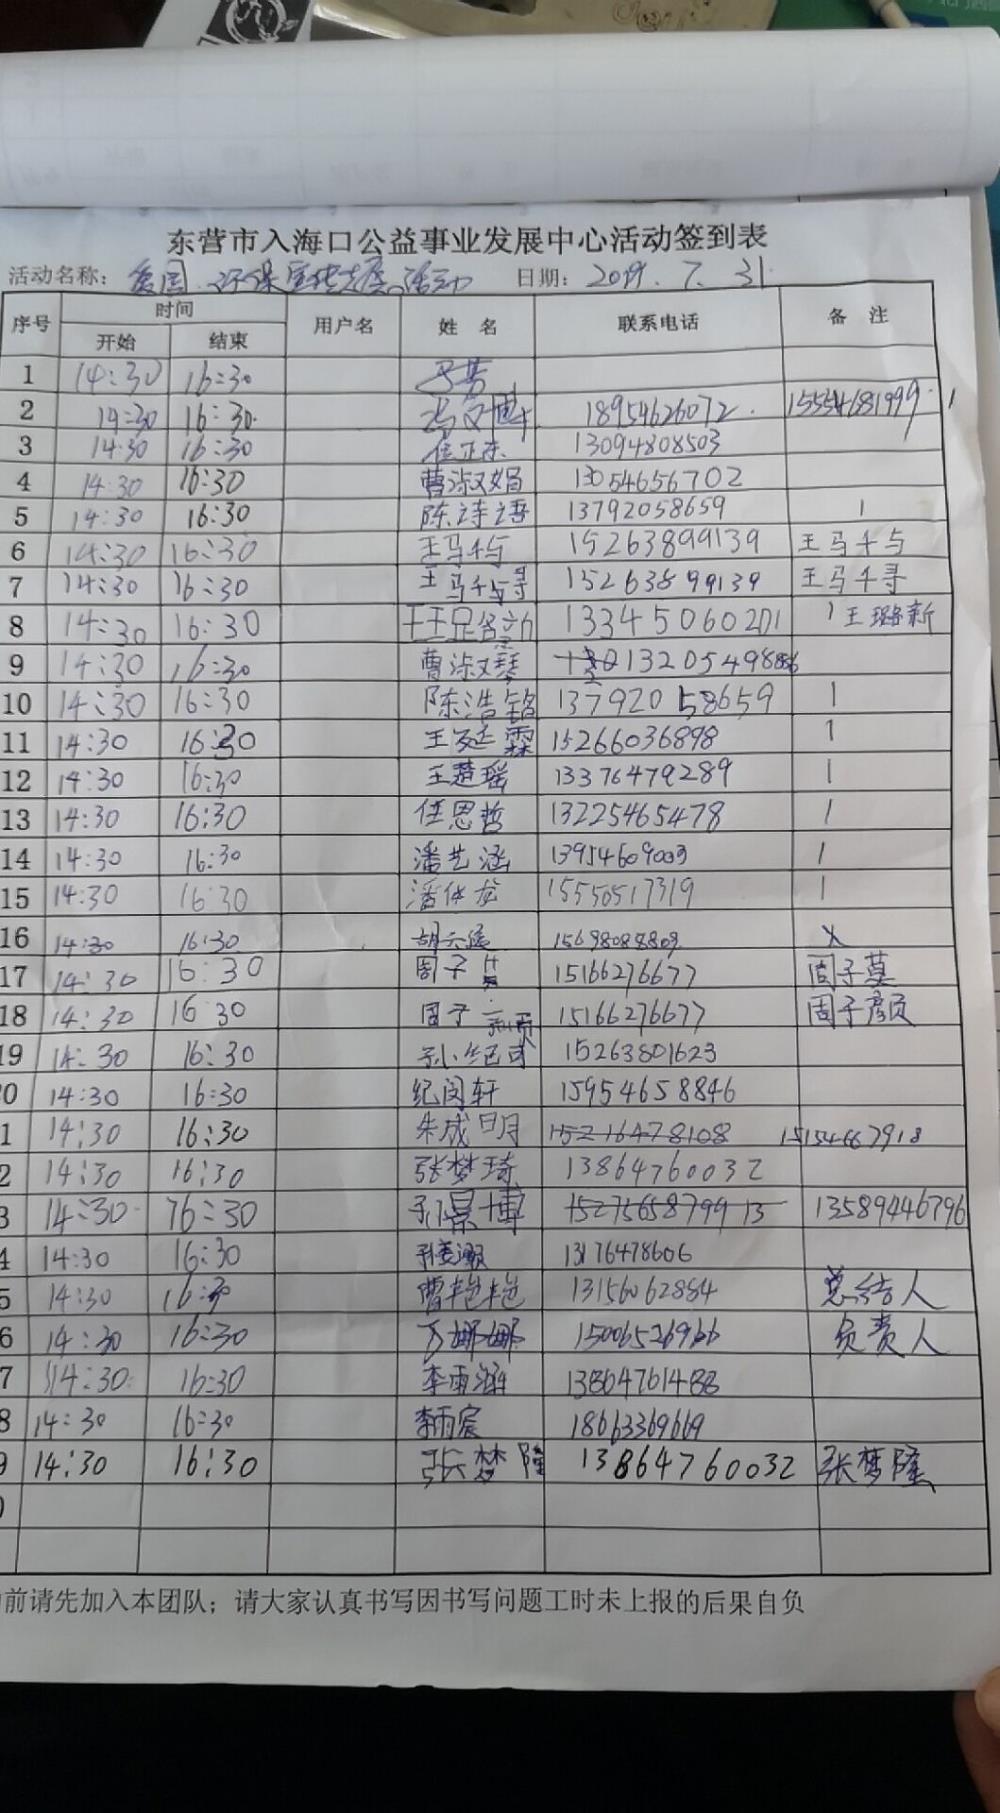 东营市入海口公益事业发展中心活动签到表
活动名称： 爱国 环保宣传 活动 日期： 2019.7.31
序号 时间 用户名 姓名 联系电话 备注
开始 结束
1 14:30 16:30
2 14:30 16:30 冯文博 18954626072 15554681999 1
3 14:30 16:30 任正东 13094808503
4 14:30 16:30 曹淑娟 13054656702
5 14:30 16:30 陈诗语 13792058659 1
6 14:30 16:30 王马千与 15263899139 王马千与
7 14:30 16:30 王马千寻 15263899139 王马千寻
8 14:30 16:30 13345060201 1 王璐新
9 14:30 16:30 曹淑琴 13205498886
10 14:30 16:30 陈浩铭 13792058659 1
11 14:30 16:30 王廷霖 15266036898 1
12 14:30 16:30 王楚瑶 13376479289 1
13 14:30 16:30 任思哲 13225465478 1
14 14:30 16:30 潘艺涵 13954609003 1
15 14:30 16:30 潘 龙 15550517319 1
16 14:30 16:30 胡 15698088809 X
17 14:30 16:30 周子 15166276677 周子莫
18 14:30 16:30 周子 15166276677 周子颜
19 14:30 16:30 孙纪可 15263801623
0 14:30 16:30 纪闵轩 15954658846
1 14:30 16:30 朱成明 15216478108 15154667918
2 14:30 16:30 张梦琦 13864760032
3 14:30 16:30 孙景博 15275658799 13 13589446796
4 14:30 16:30 13176478606
5 14:30 16:30 曹艳艳 13156062884 总结人
6 14:30 16:30 万娜娜 15006526966 负责人
7 14:30 16:30 李雨涵 13864761488
8 14:30 16:30 李雨宸 18663369669
9 14:30 16:30 张梦隆 13864760032 张梦隆
0
前请先加入本团队；请大家认真书写因书写问题工时未上报的后果自负